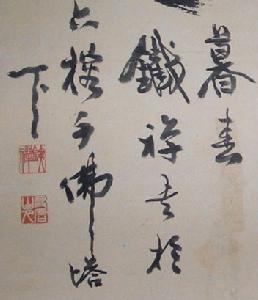 暮春
鐵禪書於
六榕千佛塔
下